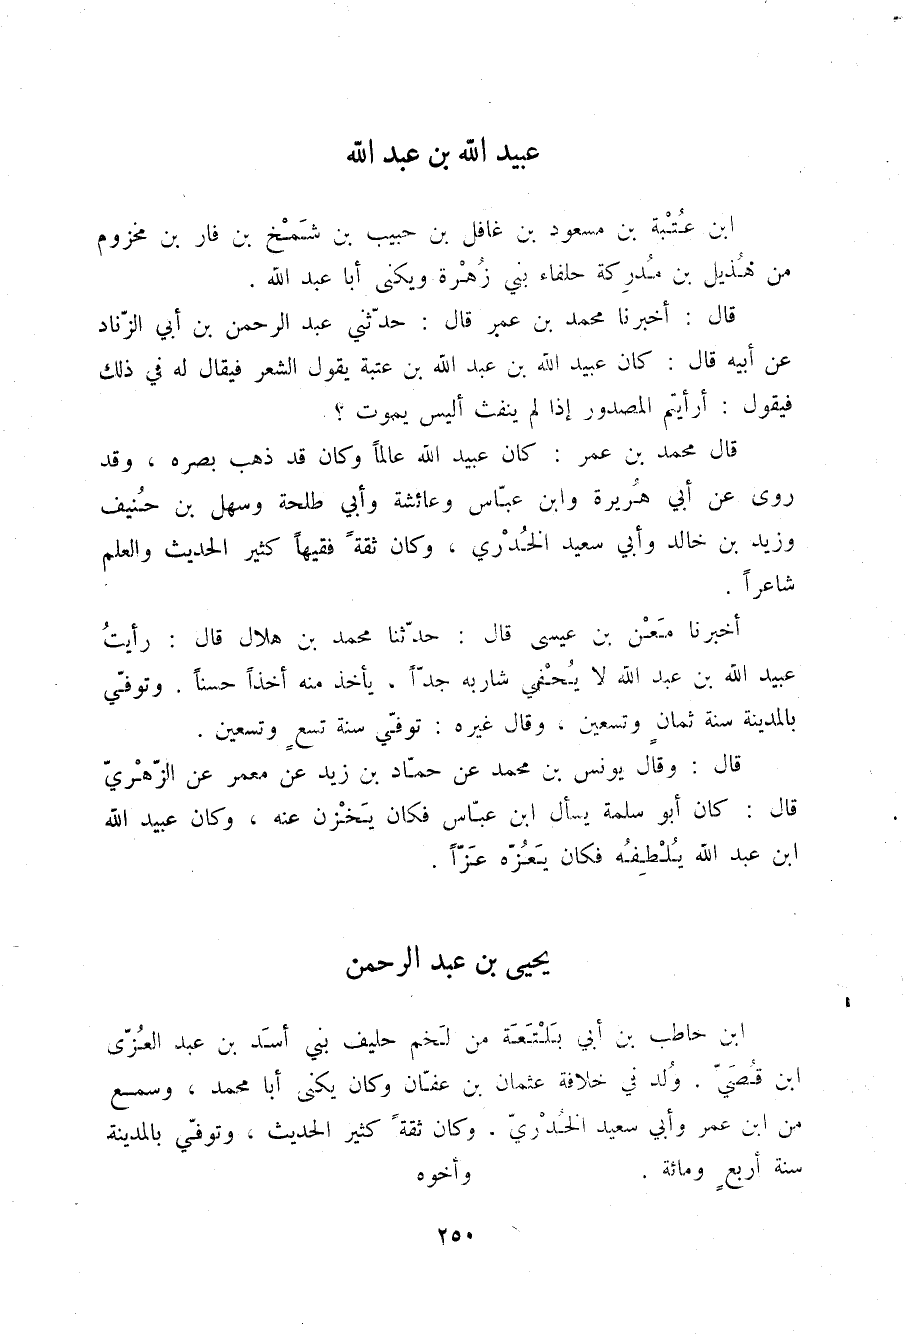 عبيد الله بن عبد الله
ابن عُتْبة بن مسعود بن غافل بن حبيب بن شَمْخ بن فار بن مخزوم
من هُذيل بن مُدرِكة حلفاء بني زُهْرة ويكنى أبا عبد الله .
قال : أخبرنا محمد بن عمر قال : حدّثني عبد الرحمن بن أبي الزّناد
عن أبيه قال : كان عبيد الله بن عبد الله بن عتبة يقول الشعر فيقال له في ذلك
فيقول : أرأيتم المصدور إذا لم ينفث أليس يموت ؟
قال محمد بن عمر : كان عبيد الله عالماً وكان قد ذهب بصره ، وقد
روى عن أبي هُريرة وابن عبّاس وعائشة وأبي طلحة وسهل بن حُنيف
وزيد بن خالد وأبي سعيد الخُدْري ، وكان ثقةً فقيهاً كثير الحديث والعلم
شاعراً .
أخبرنا مَعْن بن عيسى قال : حدّثنا محمد بن هلال قال : رأيتُ
عبيد الله بن عبد الله لا يُحْفي شاربه جدّاً . يأخذ منه أخذاً حسناً . وتوفّي
بالمدينة سنة ثمانٍ وتسعين ، وقال غيره : توفّي سنة تسعٍ وتسعين .
قال : وقال يونس بن محمد عن حمّاد بن زيد عن معمر عن الزّهْريّ
قال : كان أبو سلمة يسأل ابن عبّاس فكان يَخْزن عنه ، وكان عبيد الله
ابن عبد الله يُلْطِفُه فكان يَعُزّه عَزّاً .
يحيى بن عبد الرحمن
ابن حاطب بن أبي بَلْتَعَة من لَخم حليف بني أسَد بن عبد العُزّى
ابن قُصَيّ . وُلد في خلافة عثمان بن عفّان وكان يكنى أبا محمد ، وسمع
من ابن عمر وأبي سعيد الخُدْريّ . وكان ثقةً كثير الحديث ، وتوفّي بالمدينة
سنة أربعٍ ومائة . وأخوه
٢٥٠